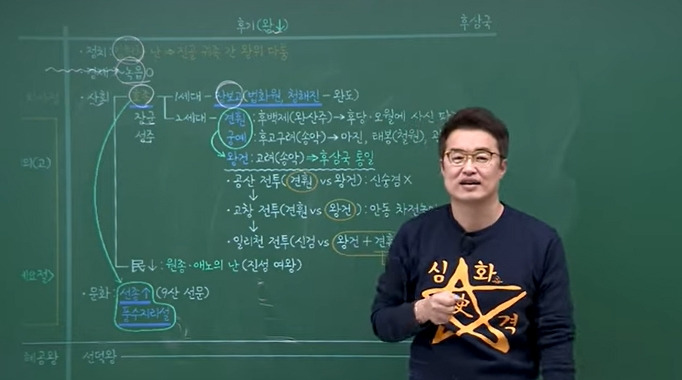 후기(왕↓) 후삼국
·정치: 난→진골 귀족 간 왕위 다툼
·경제 녹읍 O
·사회 호족 1세대 - 장보고(법화원, 청해진 - 완도)
장군 2세대 - 견훤: 후백제(완산주)→후당·오월에 사신
성주 궁예: 후고구려(송악)→마진, 태봉(철원),
왕건: 고려(송악)⇒후삼국 통일
·공산 전투(견훤 vs 왕건): 신숭겸 X
↓
·고창 전투(견훤 vs 왕건): 안동 차전놀
↓
·일리천 전투(신검 vs 왕건 + 견훤
民↓: 원종·애노의 난(진성 여왕)
·문화: 선종↑ (9산 선문)
풍수지리설
혜공왕 선덕왕
심화 史 격